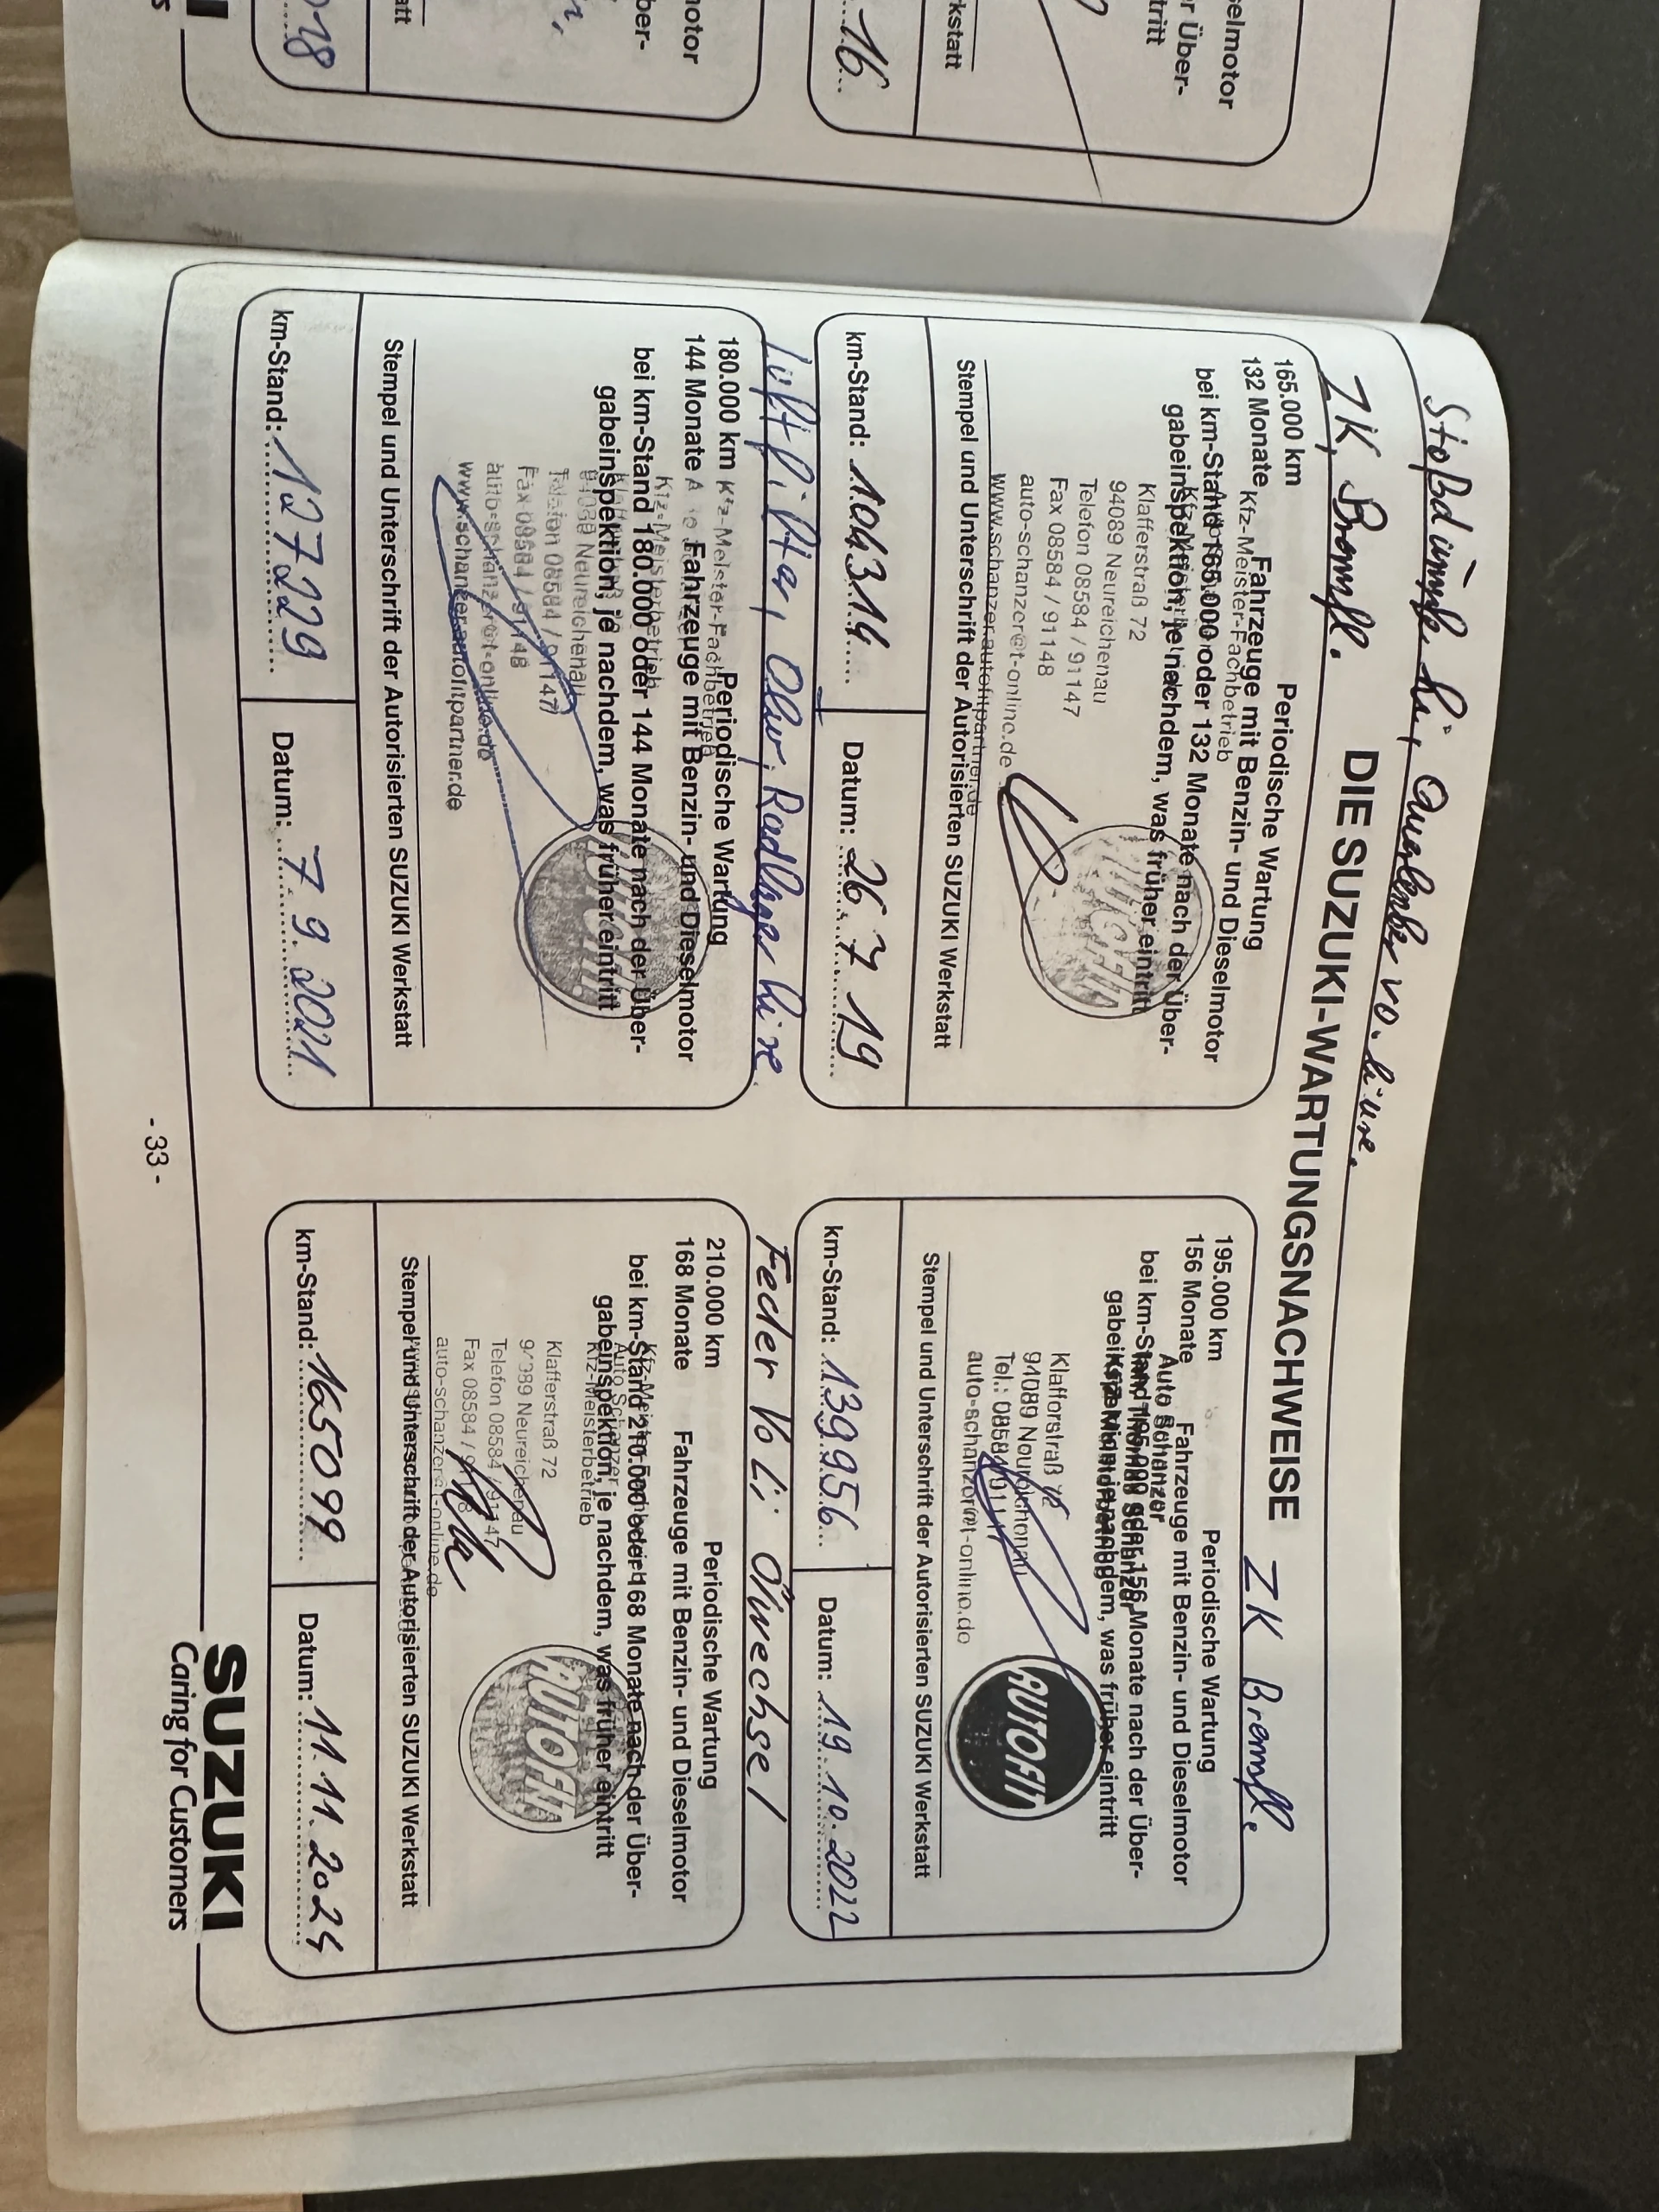 Stoßdämpfer hi, Querlenker vo. li u re.
ZK, Bremsfl.
DIE SUZUKI-WARTUNGSNACHWEISE ZK Bremsfl.
165.000 km
132 Monate
Periodische Wartung
Fahrzeuge mit Benzin- und Dieselmotor
bei km-Stand 165.000 oder 132 Monate nach der Über-
gabeinspektion, je nachdem, was früher eintritt
Kfz-Meister-Fachbetrieb
Klafferstraß 72
94089 Neureichenau
Telefon 08584 / 91147
Fax 08584 / 91148
auto-schanzer@t-online.de
www.schanzer.autofitpartner.de
Stempel und Unterschrift der Autorisierten SUZUKI Werkstatt
km-Stand: 104314
Datum: 26.7.19
Luftfilter, Ölw, Radlager hi re.
180.000 km
144 Monate
Periodische Wartung
Fahrzeuge mit Benzin- und Dieselmotor
bei km-Stand 180.000 oder 144 Monate nach der Über-
gabeinspektion, je nachdem, was früher eintritt
Kfz-Meister-Fachbetrieb
Kfz-Meisterbetrieb
94089 Neureichenau
Telefon 08584 / 91147
Fax 08584 / 91148
auto-schanzer@t-online.de
www.schanzer.autofitpartner.de
Stempel und Unterschrift der Autorisierten SUZUKI Werkstatt
km-Stand: 127229
Datum: 7.9.2021
195.000 km
156 Monate
Periodische Wartung
Fahrzeuge mit Benzin- und Dieselmotor
bei km-Stand 195.000 oder 156 Monate nach der Über-
gabeinspektion, je nachdem, was früher eintritt
Auto Schanzer
Klafferstraß 72
94089 Neureichenau
Tel.: 08584/91147
auto-schanzer@t-online.de
AUTOFIT
Stempel und Unterschrift der Autorisierten SUZUKI Werkstatt
km-Stand: 139956
Datum: 19.10.2022
Feder Vo Li Ölwechsel
210.000 km
168 Monate
Periodische Wartung
Fahrzeuge mit Benzin- und Dieselmotor
bei km-Stand 210.000 oder 168 Monate nach der Über-
gabeinspektion, je nachdem, was früher eintritt
Auto Schanzer
Kfz-Meisterbetrieb
Klafferstraß 72
94089 Neureichenau
Telefon 08584 / 91147
Fax 08584 / 91148
auto-schanzer@t-online.de
AUTOFIT
Stempel und Unterschrift der Autorisierten SUZUKI Werkstatt
km-Stand: 165099
Datum: 11.11.2024
- 33 -
SUZUKI
Caring for Customers
elmotor
r Über-
tritt
kstatt
16
motor
ber-
att
018